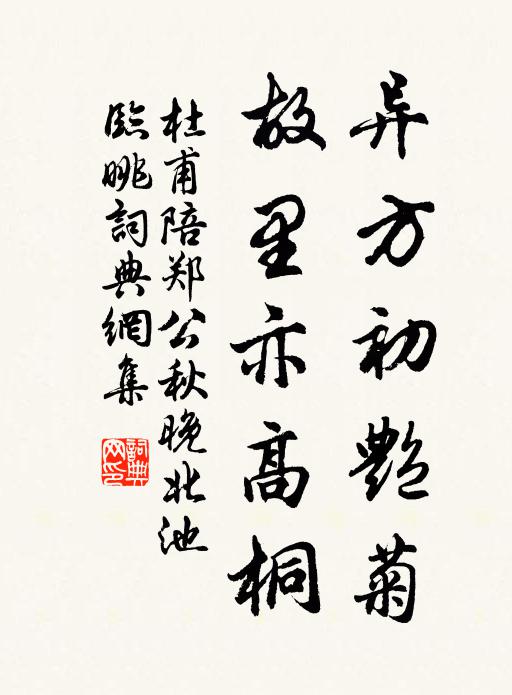 异方初艷菊
故里亦高桐
杜甫陪郑公秋晚北池
臨眺詞典網集
詞典
网印